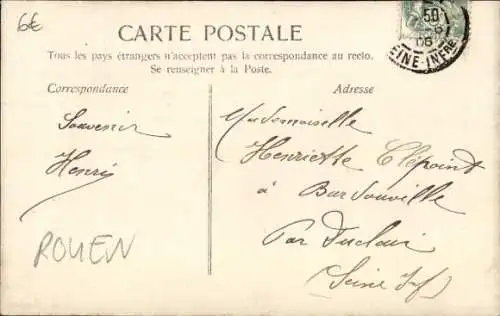 6€
CARTE POSTALE
Tous les pays étrangers n'acceptent pas la correspondance au recto.
Se renseigner à la Poste.
Correspondance
Adresse
Souvenir
Henri
ROUEN
Mademoiselle
Henriette Clépoint
à Bardouville
Par Duclair
(Seine Inf)
50
06
EINE-INFRE